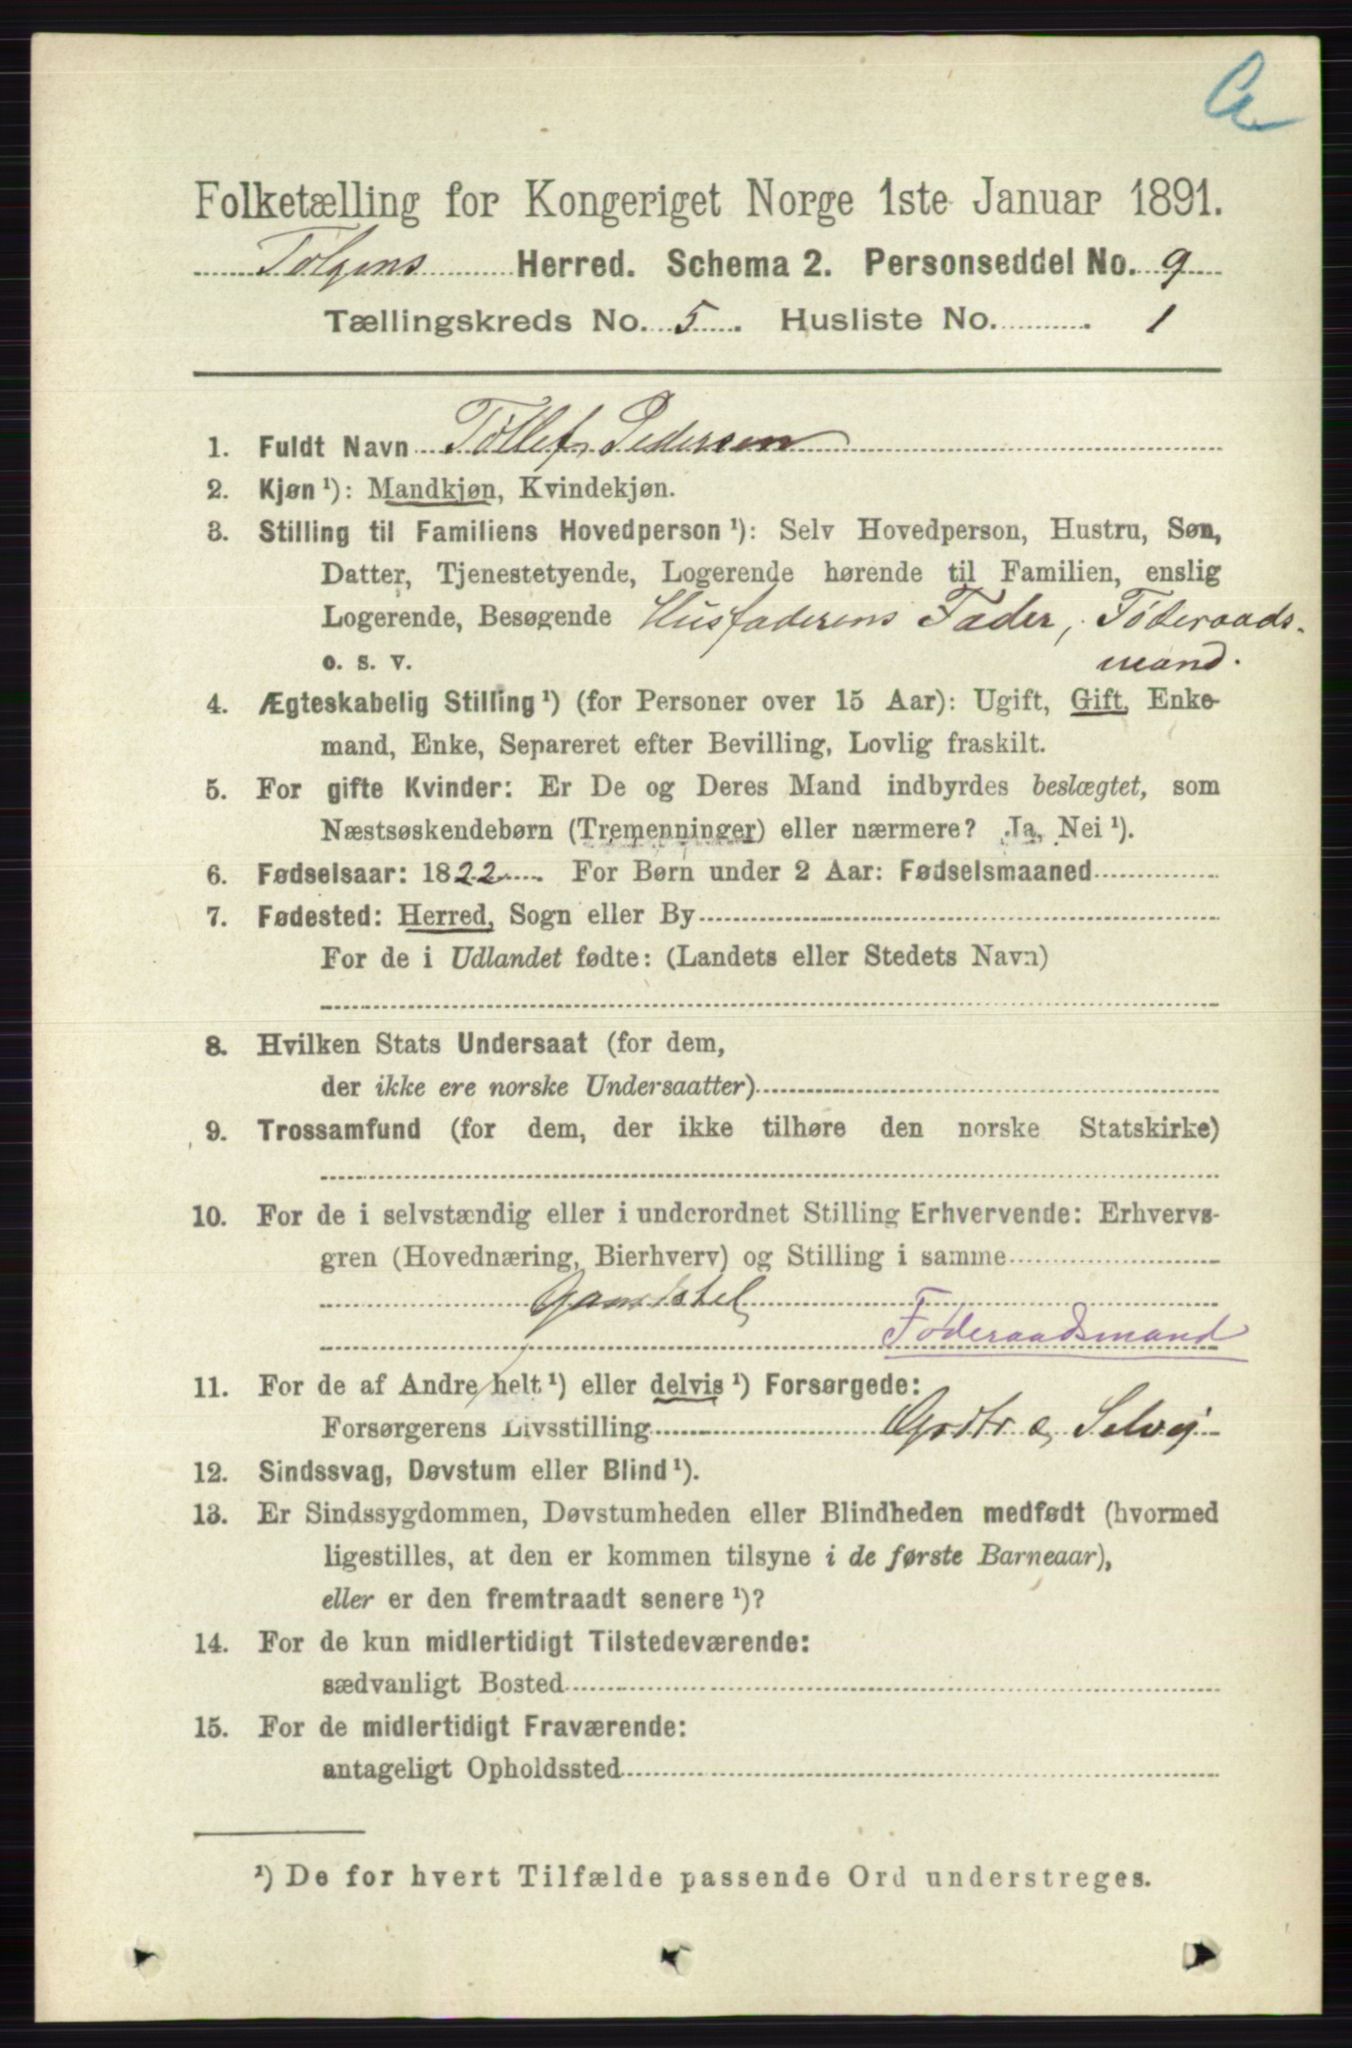 Folketælling for Kongeriget Norge 1ste Januar 1891.
Tolgens Herred. Schema 2. Personseddel No. 9
Tællingskreds No. 5. Husliste No. 1
1. Fuldt Navn Tollef Pedersen
2. Kjøn ¹): Mandkjøn, Kvindekjøn.
3. Stilling til Familiens Hovedperson ¹): Selv Hovedperson, Hustru, Søn,
Datter, Tjenestetyende, Logerende hørende til Familien, enslig
Logerende, Besøgende Husfaderens Fader, Föderaads-
o. s. v. mand.
4. Ægteskabelig Stilling ¹) (for Personer over 15 Aar): Ugift, Gift, Enke-
mand, Enke, Separeret efter Bevilling, Lovlig fraskilt.
5. For gifte Kvinder: Er De og Deres Mand indbyrdes beslægtet, som
Næstsøskendebørn (Tremenninger) eller nærmere? Ja, Nei ¹).
6. Fødselsaar: 1822. For Børn under 2 Aar: Fødselsmaaned
7. Fødested: Herred, Sogn eller By
For de i Udlandet fødte: (Landets eller Stedets Navn)
8. Hvilken Stats Undersaat (for dem,
der ikke ere norske Undersaatter)
9. Trossamfund (for dem, der ikke tilhøre den norske Statskirke)
10. For de i selvstændig eller i underordnet Stilling Erhvervende: Erhvervs-
gren (Hovednæring, Bierhverv) og Stilling i samme
Føderaadsmand
11. For de af Andre helt ¹) eller delvis ¹) Forsørgede:
Forsørgerens Livsstilling Selvej
12. Sindssvag, Døvstum eller Blind ¹).
13. Er Sindssygdommen, Døvstumheden eller Blindheden medfødt (hvormed
ligestilles, at den er kommen tilsyne i de første Barneaar),
eller er den fremtraadt senere ¹)?
14. For de kun midlertidigt Tilstedeværende:
sædvanligt Bosted
15. For de midlertidigt Fraværende:
antageligt Opholdssted
¹) De for hvert Tilfælde passende Ord understreges.